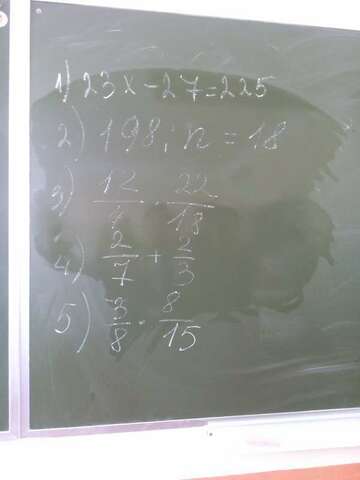 1) 23x - 27 = 225
2) 198 : n = 18
3) 12/7 · 22/18
4) 2/7 + 2/3
5) 3/8 · 8/15